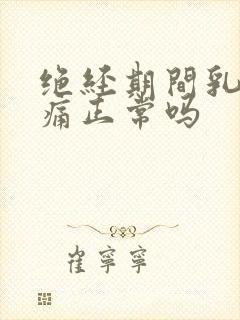 绝经期間乳
痛正常吗
崔寧寧